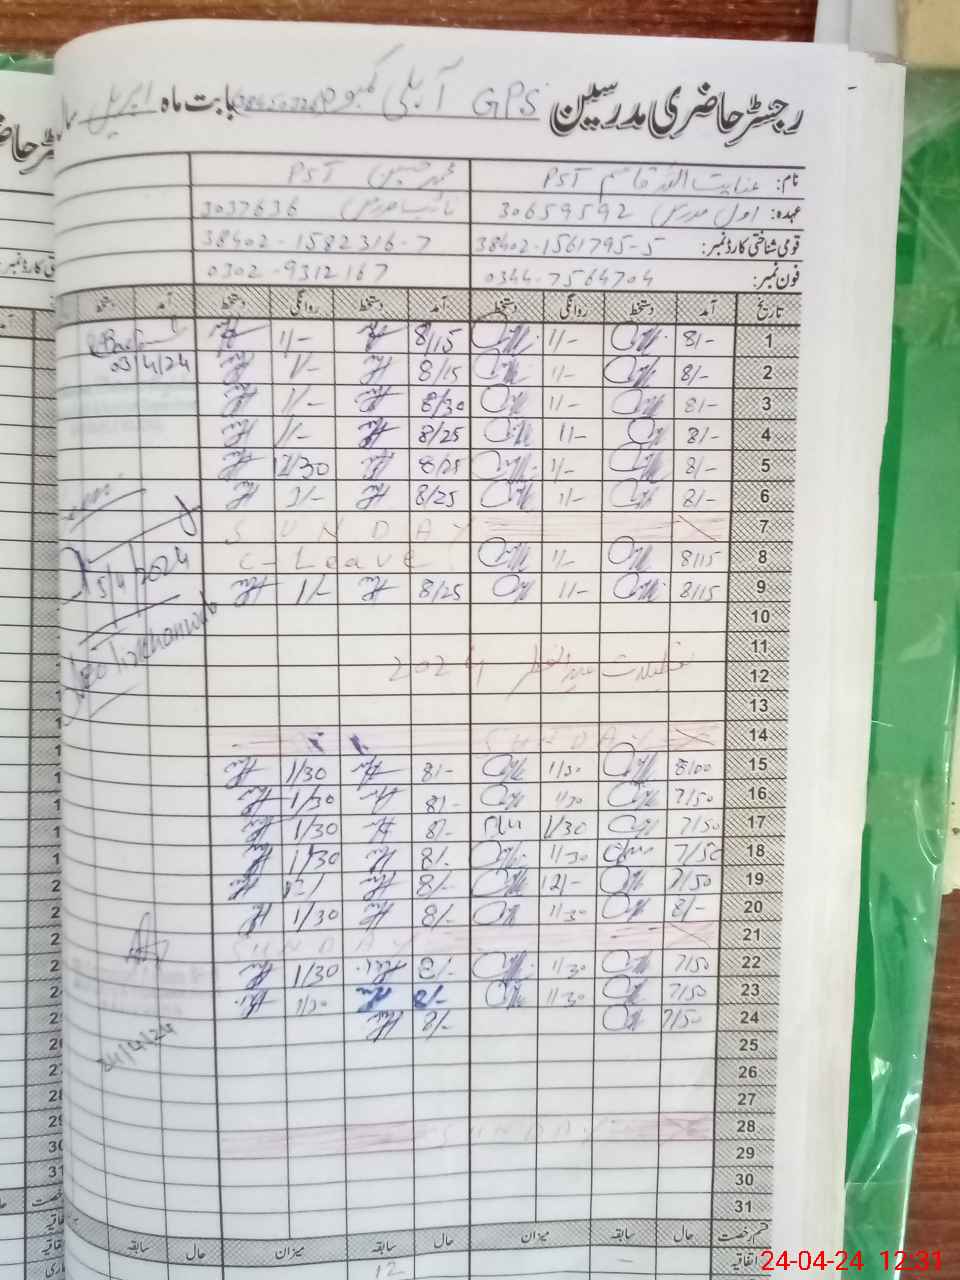 رجسٹر حاضری مدرسین GPS بابت ماہ اپریل
نام: عنایت اللہ قاسم PST محمد حسین PST
عہدہ: اول مدرس 30659592 نائب مدرس 3037636
قومی شناختی کارڈ نمبر: 38402-1561795-5 38402-1582316-7
فون نمبر: 0344-7564704 0302-9312167
تاریخ آمد دستخط روانگی دستخط آمد دستخط روانگی دستخط آمد دستخط
1 8/- 1/- 8/15 1/-
2 8/- 1/- 8/15 1/- 03/4/24
3 8/- 1/- 8/30 1/-
4 8/- 1/- 8/25 1/-
5 8/- 1/- 8/25 12/30
6 8/- 1/- 8/25 1/-
7 SUNDAY
8 8/15 1/- C-Leave
9 8/15 1/- 8/25 1/- 5/4/2024
10
11
12 تعطیلات عید الفطر 2024
13
14 SUNDAY
15 8/00 1/30 8/- 1/30
16 7/50 1/30 8/- 1/30
17 7/50 1/30 8/- 1/30
18 7/50 1/30 8/- 1/30
19 7/50 12/- 8/- 12/
20 8/- 1/30 8/- 1/30
21 SUNDAY
22 7/50 1/30 8/- 1/30
23 7/50 1/30 8/- 1/30
24 7/50 8/-
24/4/24
25
26
27
28 SUNDAY
29
30
31
قسم رخصت حال سابقہ میزان حال سابقہ میزان حال سابقہ
اتفاقیہ - 12
24-04-24 12:31